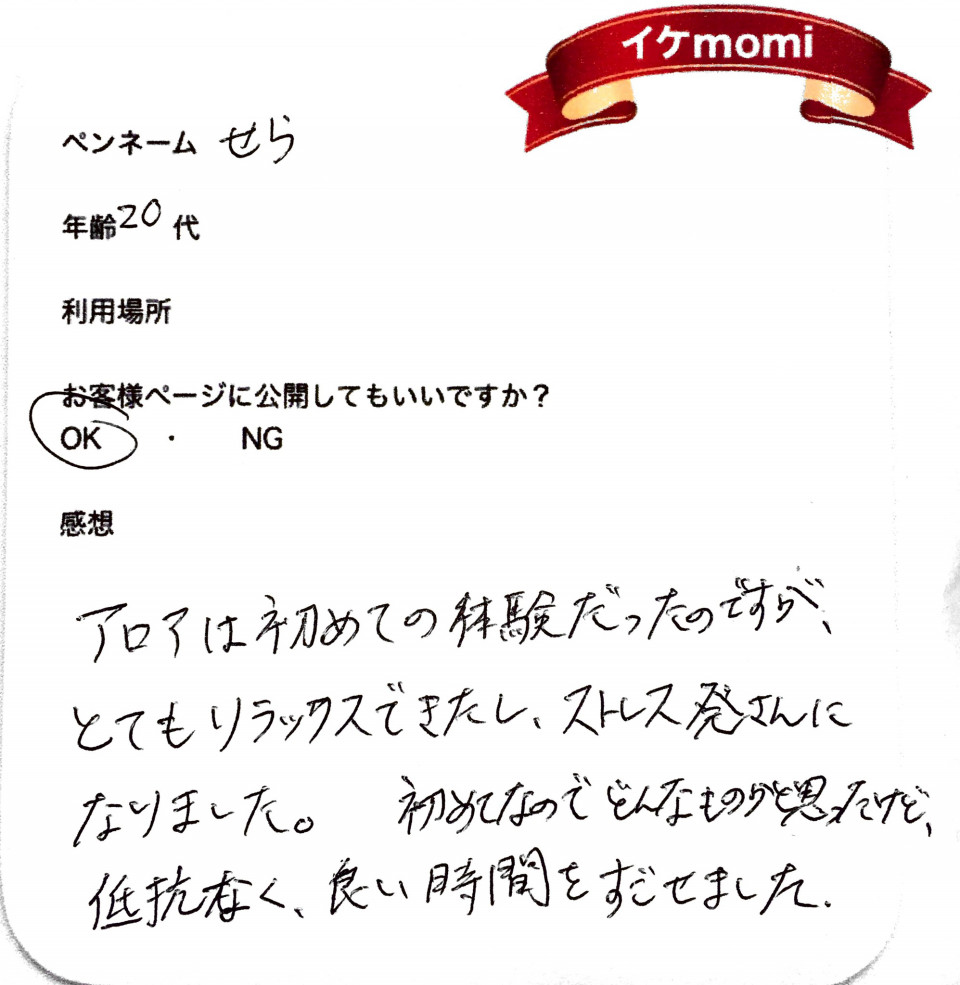 イケmomi
ペンネーム せら
年齢20代
利用場所
お客様ページに公開してもいいですか？
OK ・ NG
感想
アロアは初めての体験だったのですが、
とてもリラックスできたし、ストレス発さんに
なりました。 初めてなのでどんなものかと思ったけど、
低抗なく、良い時間をすごせました.